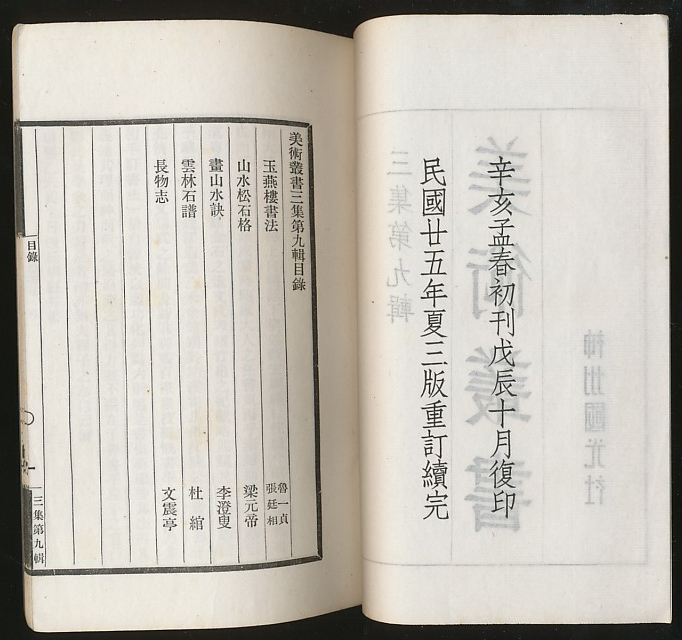 辛亥孟春初刊戊辰十月復印
民國廿五年夏三版重訂續完
神州國光社
美術叢書
三集第九輯
美術叢書三集第九輯目錄
玉燕樓書法 魯一貞 張廷相
山水松石格 梁元帝
畫山水訣 李澄叟
雲林石譜 杜綰
長物志 文震亨
目錄
三集第九輯